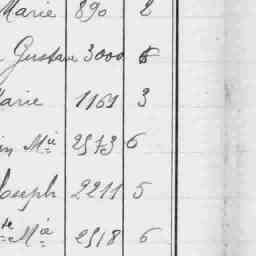 Marie 890 2
Gustave 3000 6
Marie 1161 3
in Mie 2573 6
Joseph 2211 5
te Mie 2518 6